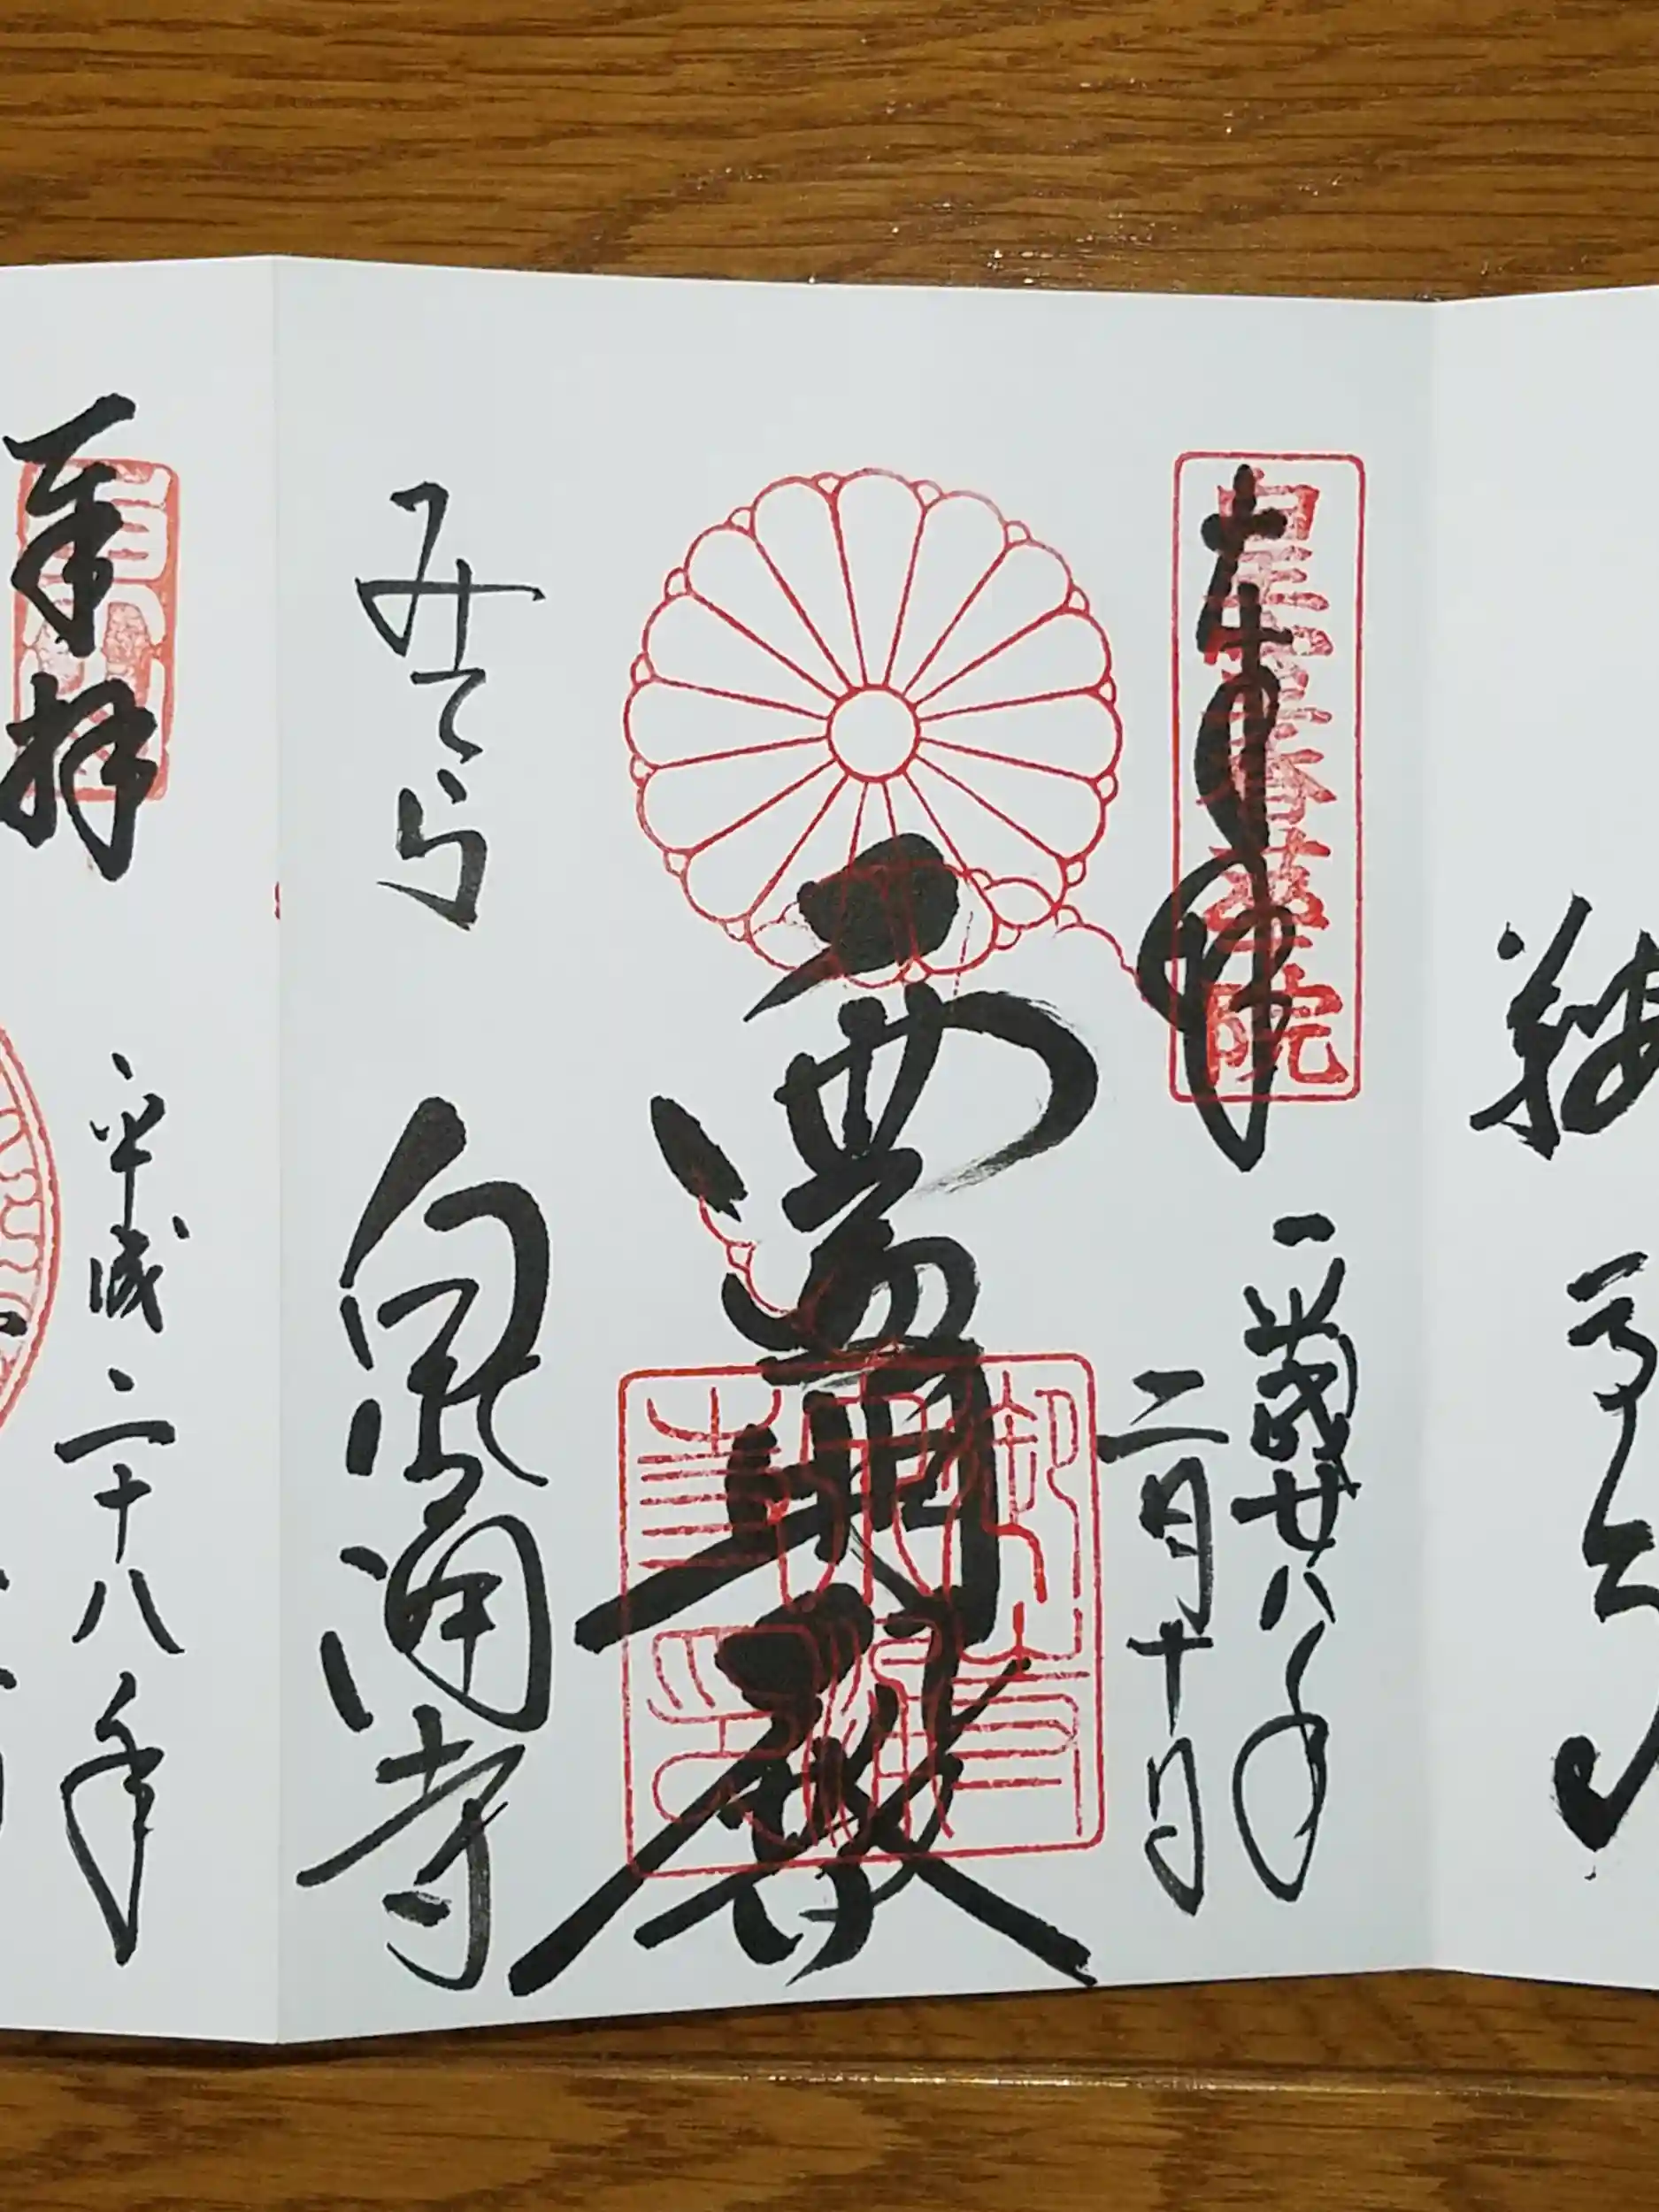 奉拝
皇室香華院
平成廿八年
二月十日
霊明殿
みてら
泉涌寺
奉拝
平成二十八年